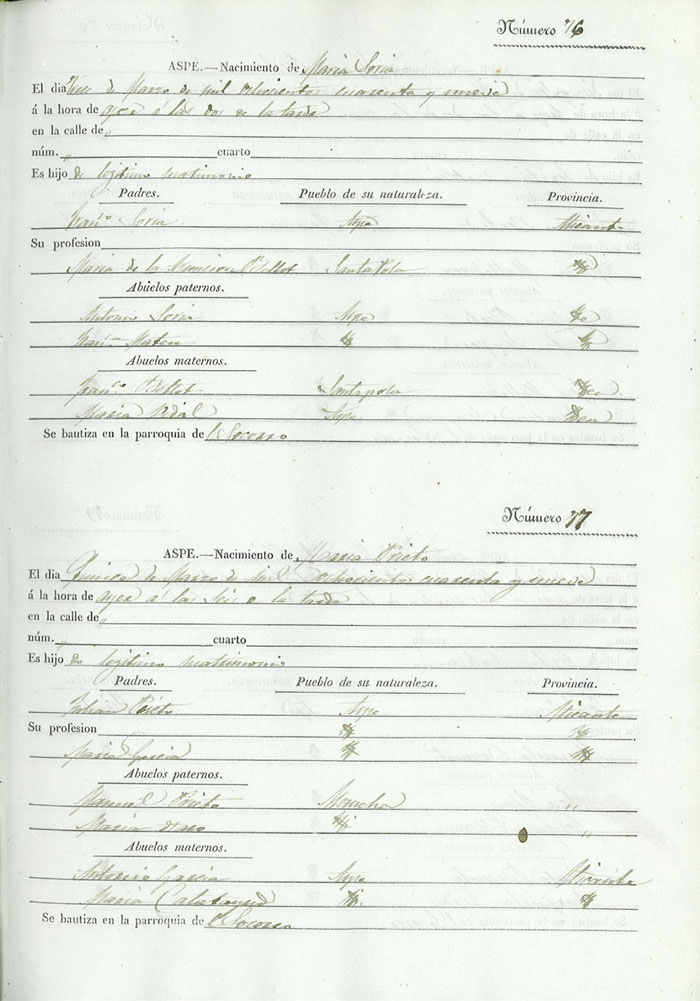 Número 76
ASPE.—Nacimiento de Maria Soria
El dia Trece de Marzo de mil Ochocientos cuarenta y nueve
á la hora de ayer á las dos de la tarde
en la calle de "
núm. " cuarto
Es hijo de legitimo matrimonio
Padres. Pueblo de su naturaleza. Provincia.
Fran.º Soria Aspe Alicante
Su profesion
Maria de la Asuncion Bellot Santa Pola
Abuelos paternos.
Antonio Soria Aspe
Fran.ca Mateu
Abuelos maternos.
Fran.º Bellot Santapola
Maria Vidal Aspe
Se bautiza en la parroquia de el Socorro
Número 77
ASPE.—Nacimiento de Maria Prieto
El dia Quince de Marzo de mil Ochocientos cuarenta y nueve
á la hora de ayer á las seis de la tarde
en la calle de "
núm. " cuarto
Es hijo de legitimo matrimonio
Padres. Pueblo de su naturaleza. Provincia.
Julian Prieto Aspe Alicante
Su profesion
Maria Garcia
Abuelos paternos.
Manuel Prieto Mancha "
Maria "
Abuelos maternos.
Antonio Garcia Aspe Alicante
Maria Calatayud
Se bautiza en la parroquia de el Socorro